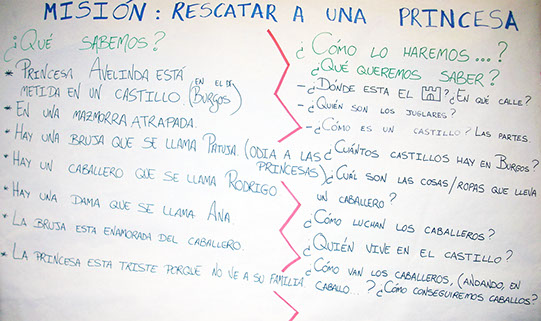 MISIÓN: RESCATAR A UNA PRINCESA
¿QUÉ SABEMOS?
* PRINCESA AVELINDA ESTÁ
METIDA EN UN CASTILLO. (EN EL DE BURGOS)
* EN UNA MAZMORRA ATRAPADA.
* HAY UNA BRUJA QUE SE LLAMA PATUJA. (ODIA A LAS PRINCESAS)
* HAY UN CABALLERO QUE SE LLAMA RODRIGO
* HAY UNA DAMA QUE SE LLAMA ANA.
* LA BRUJA ESTA ENAMORADA DEL CABALLERO.
* LA PRINCESA ESTA TRISTE PORQUE NO VE A SU FAMILIA.
¿CÓMO LO HAREMOS...?
¿QUÉ QUEREMOS SABER?
- ¿DÓNDE ESTA EL ? ¿EN QUÉ CALLE?
- ¿QUIÉN SON LOS JUGLARES?
- ¿CÓMO ES UN CASTILLO? LAS PARTES.
¿CUÁNTOS CASTILLOS HAY EN BURGOS?
¿CUÁL SON LAS COSAS/ROPAS QUE LLEVA
UN CABALLERO?
¿CÓMO LUCHAN LOS CABALLEROS?
¿QUIÉN VIVE EN EL CASTILLO?
¿CÓMO VAN LOS CABALLEROS, (ANDANDO, EN
CABALLO...? ¿CÓMO CONSEGUIREMOS CABALLOS?